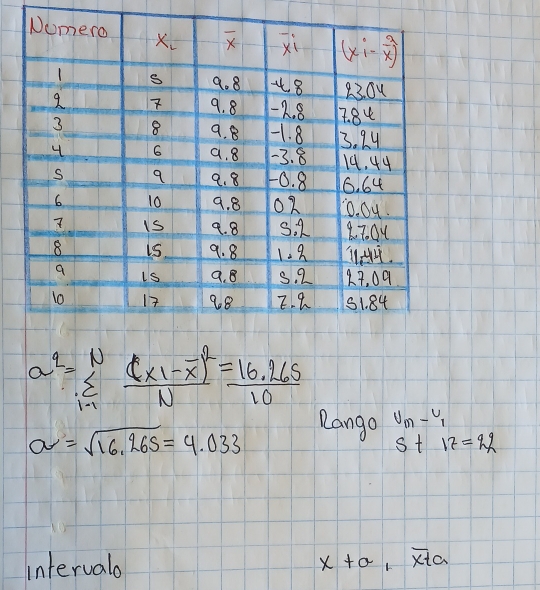 Numero xi x̄ x̄i (xi-x̄)²
1 5 9.8 -4.8 23.04
2 7 9.8 -2.8 7.84
3 8 9.8 -1.8 3.24
4 6 9.8 -3.8 14.44
5 9 9.8 -0.8 6.64
6 10 9.8 02 0.04.
7 15 9.8 5.2 27.04
8 15 9.8 1.2 11.44.
9 15 9.8 5.2 27.09
10 17 9.8 7.2 51.84
a² = N Σ i-1 (xi-x̄)² / N = 16.265 / 10
a = √16.265 = 4.033
Rango Um - U1
5 + 17 = 22
intervalo x + a, x̄ + a